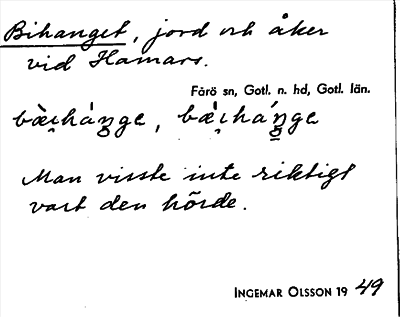 Bihanget, jord och åker
vid Hamars.
Fårö sn, Gotl. n. hd, Gotl. län.
bæ̀i̯há́ŋge, bæ̀i̯há́ŋge
Man visste inte riktigt
vart den hörde.
INGEMAR OLSSON 19 49